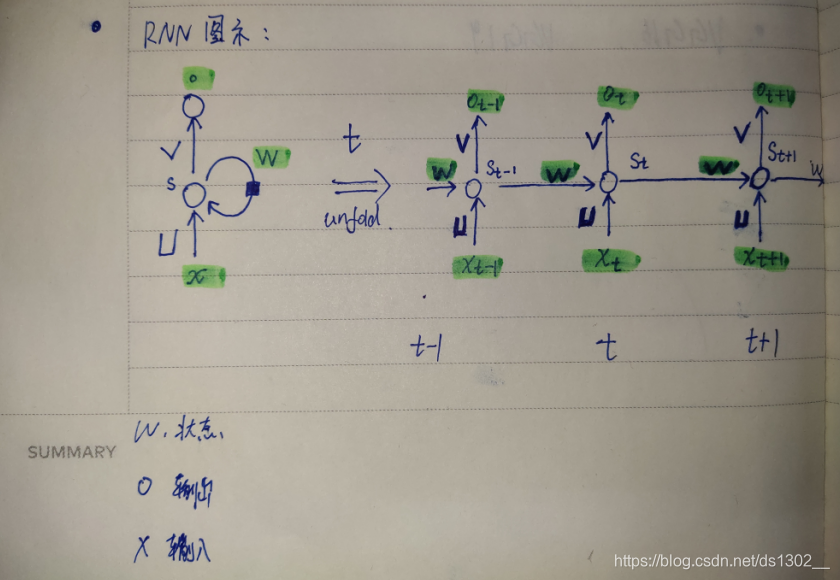 RNN 图示:
o
V
W
s
U
x
t
unfold.
O_{t-1} O_t O_{t+1}
V V V
W S_{t-1} W S_t W S_{t+1} W
U U U
X_{t-1} X_t X_{t+1}
t-1 t t+1
SUMMARY
W. 状态.
O 输出
X 输入
https://blog.csdn.net/ds1302__